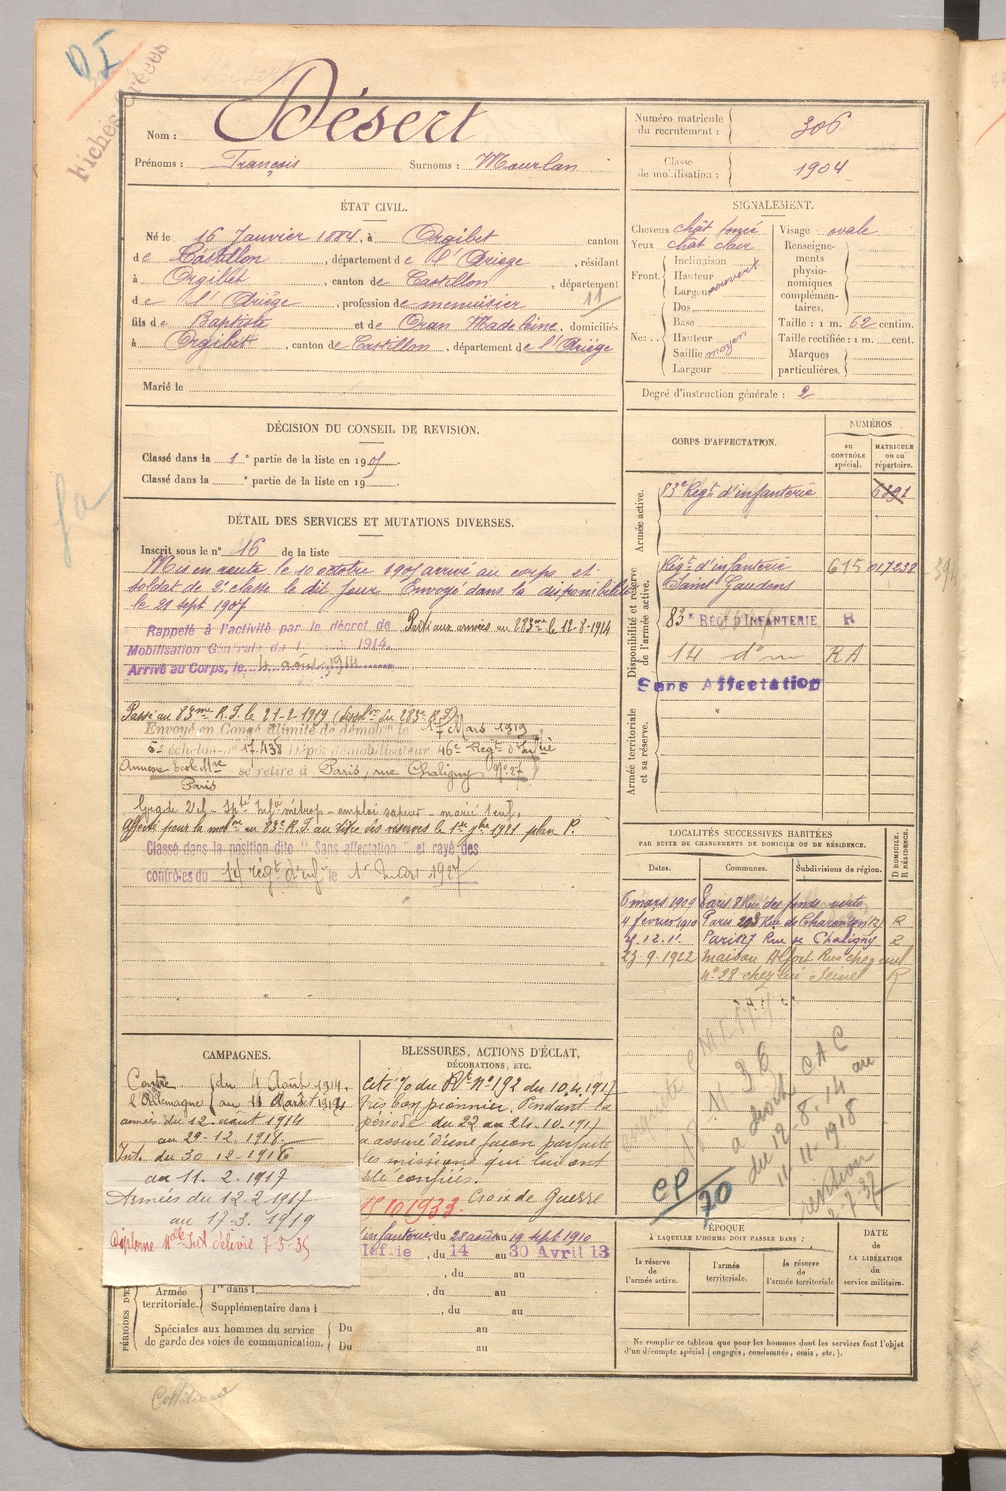 Fiches
Nom : Désert
Prénoms : François Surnoms : Mourlan
Numéro matricule du recrutement : 306
Classe de mobilisation : 1904
ÉTAT CIVIL.
Né le 16 Janvier 1884, à Orgibet canton
de Castillon, département de l'Ariège, résidant
à Orgibet, canton de Castillon, département
de l'Ariège, profession de menuisier
11
fils de Baptiste et de Oran Madeleine, domiciliés
à Orgibet, canton de Castillon, département de l'Ariège
Marié le
SIGNALEMENT.
Cheveux chât foncé
Yeux chât clair
Front. Inclinaison
Hauteur
Largeur
couvert
Nez . . Dos
Base
Hauteur
Saillie moyen
Largeur
Visage ovale
Renseignements physionomiques complémentaires.
Taille : 1 m. 62 centim.
Taille rectifiée : 1 m. cent.
Marques particulières.
Degré d'instruction générale : 2
DÉCISION DU CONSEIL DE REVISION.
Classé dans la 1e partie de la liste en 1905.
Classé dans la e partie de la liste en 19 .
DÉTAIL DES SERVICES ET MUTATIONS DIVERSES.
Inscrit sous le n° 16 de la liste
Mis en route le 10 octobre 1905 arrivé au corps et
soldat de 2e classe le dit jour Envoyé dans la disponibilité
le 28 sept 1907
Rappelé à l'activité par le décret de Parti aux armées au 283me le 12-8-1914
Mobilisation Générale du 1 août 1914.
Arrivé au Corps, le 4 août 1914
Passé au 83me R.I. le 21-2-1919 (dissol. du 283e R.I)
Envoyé en Congé illimité de démob le 17 Mars 1919
échelon n° 17.438 Dépôt démobilisateur 46e Régt d'Infie
Annexe Ecole Mre se retire à Paris, rue Chaligny N° 27
Paris
Grade 2Cl - Spté Infie métrop - emploi sapeur - marié 1 enf.
Affecté pour la mob au 83e R.I. au titre des réserves le 1er 9bre 1921 plan P.
Classé dans la position dite "Sans affectation" et rayé des
contrôles du 14 régt d'inf le 1er Mars 1927
CORPS D'AFFECTATION.
NUMÉROS
au CONTRÔLE spécial.
MATRICULE ou au répertoire.
Armée active.
83e Régt d'infanterie 6891
Disponibilité et réserve de l'armée active.
Régt d'infanterie 615 017238
Saint Gaudens
83e RÉGT D'INFANTERIE R
14 d° RA
Sans Affectation
Armée territoriale et sa réserve.
LOCALITÉS SUCCESSIVES HABITÉES
PAR SUITE DE CHANGEMENTS DE DOMICILE OU DE RÉSIDENCE.
D DOMICILE. R RÉSIDENCE.
Dates. Communes. Subdivisions de région.
6 mars 1909 Paris 8 Rue des fonds verts
4 février 1910 Paris 208 Rue de Charenton (12) R
12.11. Paris 27 Rue de Chaligny R
23-9-1922 Maison Alfort Rue
n° 28 chez lui Seine R
11 36
a droit CAC
du 12-8-14 au
11-11-1918
CP/70
CAMPAGNES.
Contre l'Allemagne du 4 Août 1914.
au 11 Août 1914
armées du 12 août 1914
au 29-12-1916
Int. du 30-12-1916
au 11.2.1917
Armées du 12.2.1917
au 17-3.1919
Diplôme délivré 7-5-35
BLESSURES, ACTIONS D'ÉCLAT,
DÉCORATIONS, ETC.
Cité à o du Rt N° 192 du 10.4.1917
très bon pionnier. Pendant la
période du 22 au 24-10-1917
a assuré d'une façon parfaite
les missions qui lui ont
été confiées.
Croix de Guerre
infanterie du 28 août au 19 sept 1910
Inf'rie du 14 au 30 Avril 13
, du au
Armée territoriale. 1re dans l , du au
Supplémentaire dans l , du au
Spéciales aux hommes du service de garde des voies de communication. Du au
Du au
ÉPOQUE
À LAQUELLE L'HOMME DOIT PASSER DANS :
la réserve de l'armée active.
l'armée territoriale.
la réserve de l'armée territoriale
DATE de LA LIBÉRATION du service militaire.
Ne remplir ce tableau que pour les hommes dont les services font l'objet
d'un décompte spécial (engagés, condamnés, omis, etc.).